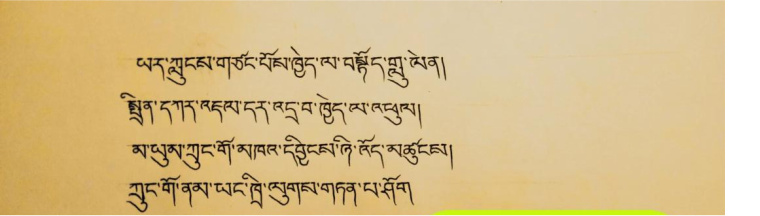 ཡར་ཀླུངས་གཙང་པོས་ཁྱེད་ལ་བསྟོད་གླུ་ལེན།
སྤྲིན་དཀར་འཇལ་དར་འདྲ་བ་ཁྱེད་ལ་འཕུལ།
མ་ཡུམ་ཀྲུང་གོ་མཁའ་དབྱིངས་ཉི་འོད་མཚུངས།
ཀྲུང་གོ་ནམ་ཡང་ཁྲི་ལུགས་གཏན་པ་ཤོག